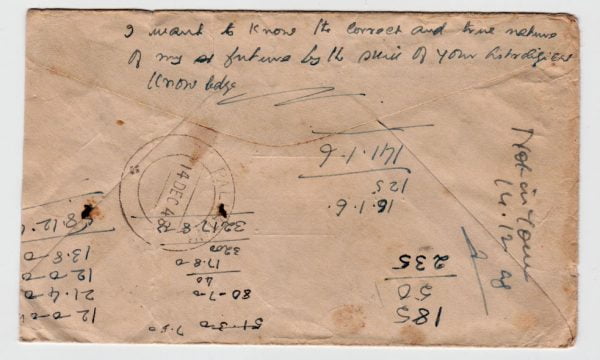 I want to know the correct and true nature
of my future by the skill of your Astrological
knowledge
14 DEC 48
Not in Town
14.12.48
16.1.6.
125
141.1.6
185
50
235
58.12.
13.8.0
12.0.0
21.4.0
12.0.0
3217.8.
3200
17.8.0
80-7-0